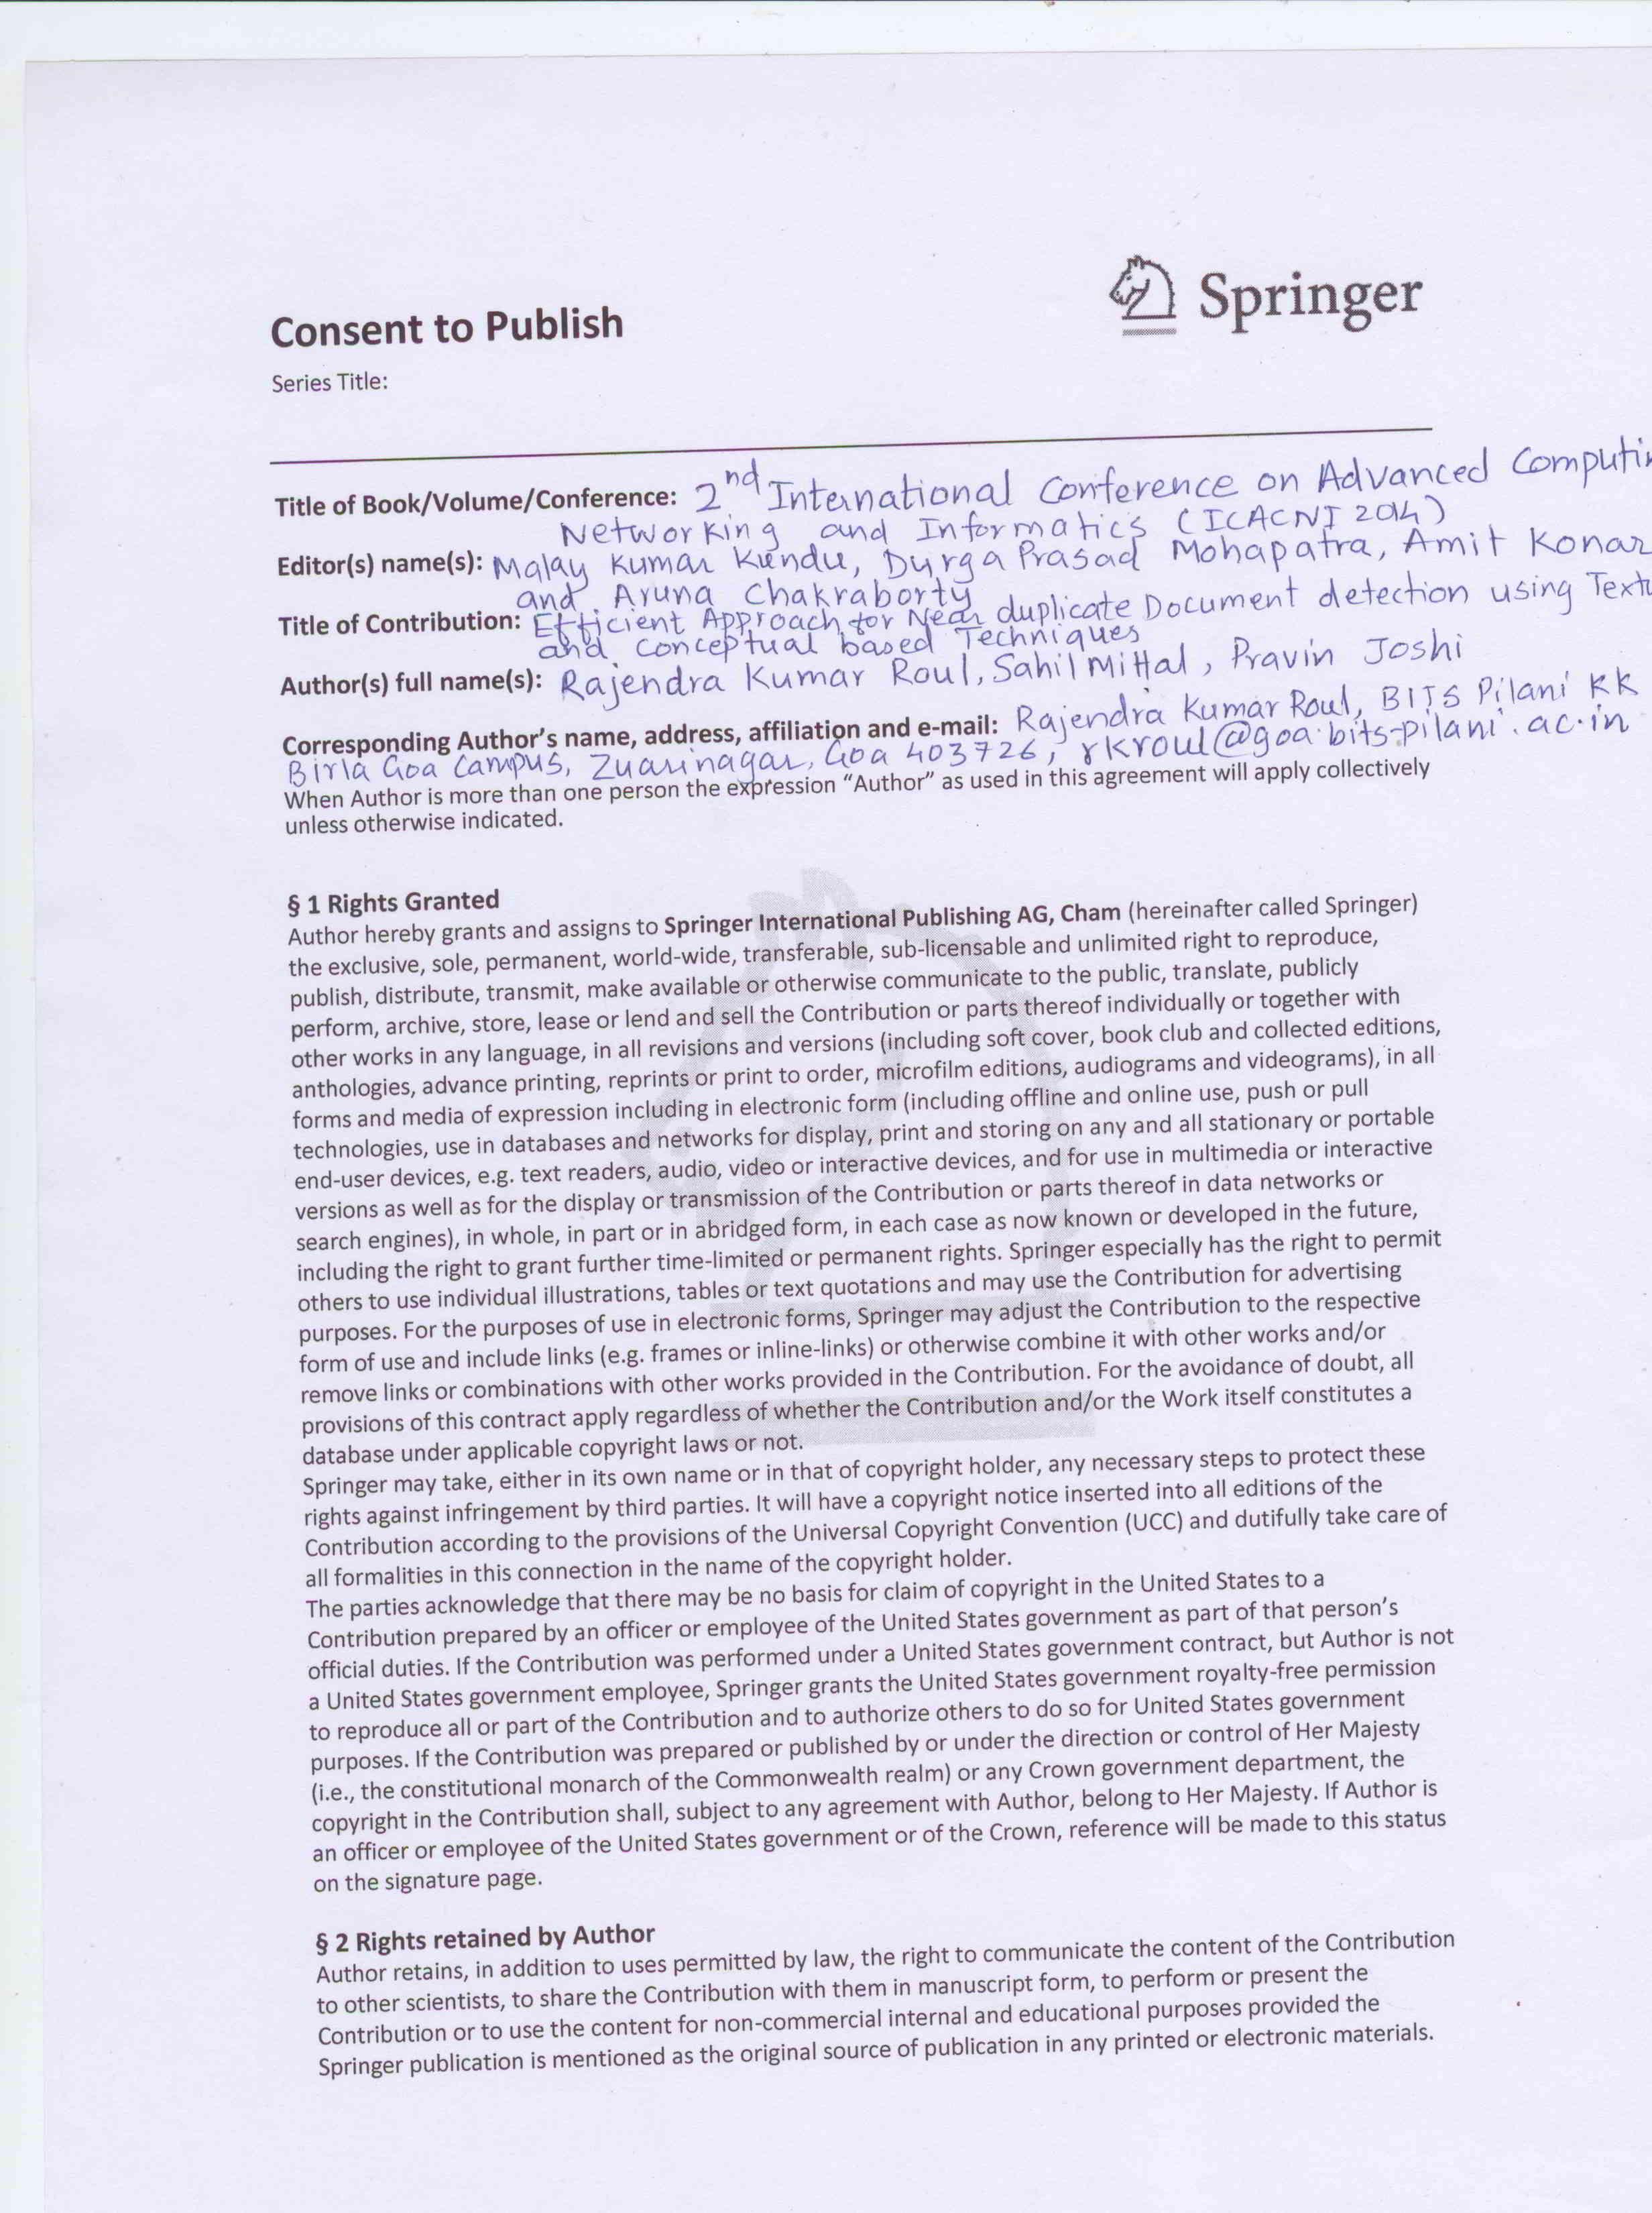 Springer
Consent to Publish
Series Title:
Title of Book/Volume/Conference: 2nd International Conference on Advanced Computin
Networking and Informatics (ICACNI 2014)
Editor(s) name(s): Malay Kumar Kundu, Durga Prasad Mohapatra, Amit Konar
and Aruna Chakraborty
Title of Contribution: Efficient Approach for Near duplicate Document detection using Textu
and conceptual based Techniques
Author(s) full name(s): Rajendra Kumar Roul, Sahil Mittal, Pravin Joshi
Corresponding Author's name, address, affiliation and e-mail: Rajendra Kumar Roul, BITS Pilani KK
Birla Goa Campus, Zuarinagar, Goa 403726, rkroul@goa.bits-pilani.ac.in
When Author is more than one person the expression "Author" as used in this agreement will apply collectively
unless otherwise indicated.
§ 1 Rights Granted
Author hereby grants and assigns to Springer International Publishing AG, Cham (hereinafter called Springer)
the exclusive, sole, permanent, world-wide, transferable, sub-licensable and unlimited right to reproduce,
publish, distribute, transmit, make available or otherwise communicate to the public, translate, publicly
perform, archive, store, lease or lend and sell the Contribution or parts thereof individually or together with
other works in any language, in all revisions and versions (including soft cover, book club and collected editions,
anthologies, advance printing, reprints or print to order, microfilm editions, audiograms and videograms), in all
forms and media of expression including in electronic form (including offline and online use, push or pull
technologies, use in databases and networks for display, print and storing on any and all stationary or portable
end-user devices, e.g. text readers, audio, video or interactive devices, and for use in multimedia or interactive
versions as well as for the display or transmission of the Contribution or parts thereof in data networks or
search engines), in whole, in part or in abridged form, in each case as now known or developed in the future,
including the right to grant further time-limited or permanent rights. Springer especially has the right to permit
others to use individual illustrations, tables or text quotations and may use the Contribution for advertising
purposes. For the purposes of use in electronic forms, Springer may adjust the Contribution to the respective
form of use and include links (e.g. frames or inline-links) or otherwise combine it with other works and/or
remove links or combinations with other works provided in the Contribution. For the avoidance of doubt, all
provisions of this contract apply regardless of whether the Contribution and/or the Work itself constitutes a
database under applicable copyright laws or not.
Springer may take, either in its own name or in that of copyright holder, any necessary steps to protect these
rights against infringement by third parties. It will have a copyright notice inserted into all editions of the
Contribution according to the provisions of the Universal Copyright Convention (UCC) and dutifully take care of
all formalities in this connection in the name of the copyright holder.
The parties acknowledge that there may be no basis for claim of copyright in the United States to a
Contribution prepared by an officer or employee of the United States government as part of that person's
official duties. If the Contribution was performed under a United States government contract, but Author is not
a United States government employee, Springer grants the United States government royalty-free permission
to reproduce all or part of the Contribution and to authorize others to do so for United States government
purposes. If the Contribution was prepared or published by or under the direction or control of Her Majesty
(i.e., the constitutional monarch of the Commonwealth realm) or any Crown government department, the
copyright in the Contribution shall, subject to any agreement with Author, belong to Her Majesty. If Author is
an officer or employee of the United States government or of the Crown, reference will be made to this status
on the signature page.
§ 2 Rights retained by Author
Author retains, in addition to uses permitted by law, the right to communicate the content of the Contribution
to other scientists, to share the Contribution with them in manuscript form, to perform or present the
Contribution or to use the content for non-commercial internal and educational purposes provided the
Springer publication is mentioned as the original source of publication in any printed or electronic materials.